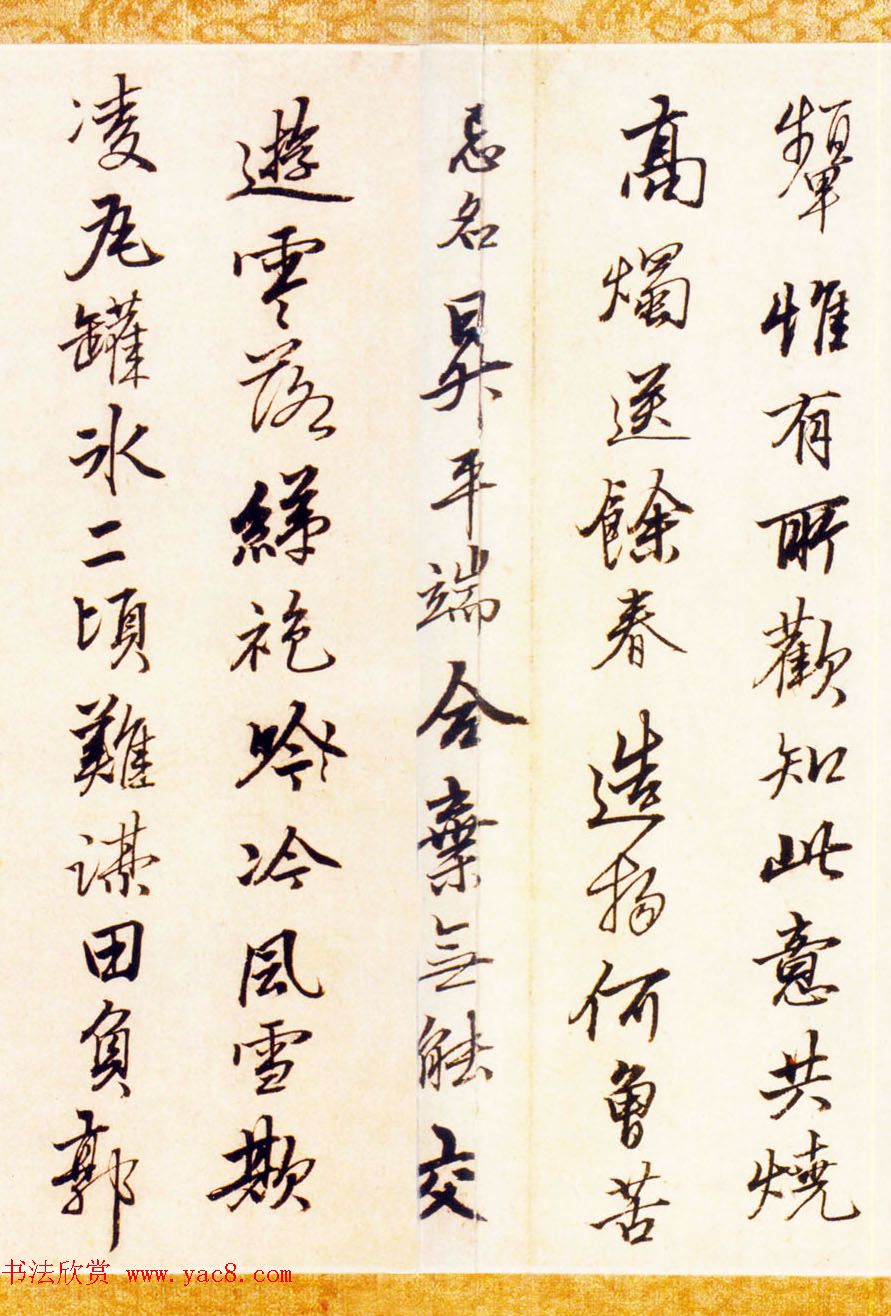 顰惟有所歡知此意共燒
高燭送餘春造物何曾苦
忌名昇平端合棄無能交
遊零落綈袍吟冷風雪欺
凌瓦罐冰二頃難謀田負郭
书法欣赏 www.yac8.com